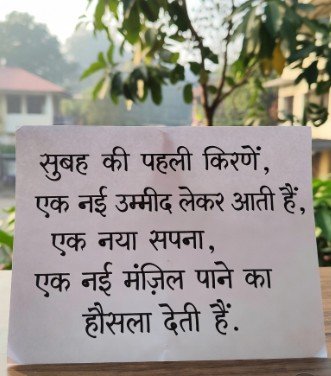 सुबह की पहली किरणें,
एक नई उम्मीद लेकर आती हैं,
एक नया सपना,
एक नई मंज़िल पाने का
हौसला देती हैं.